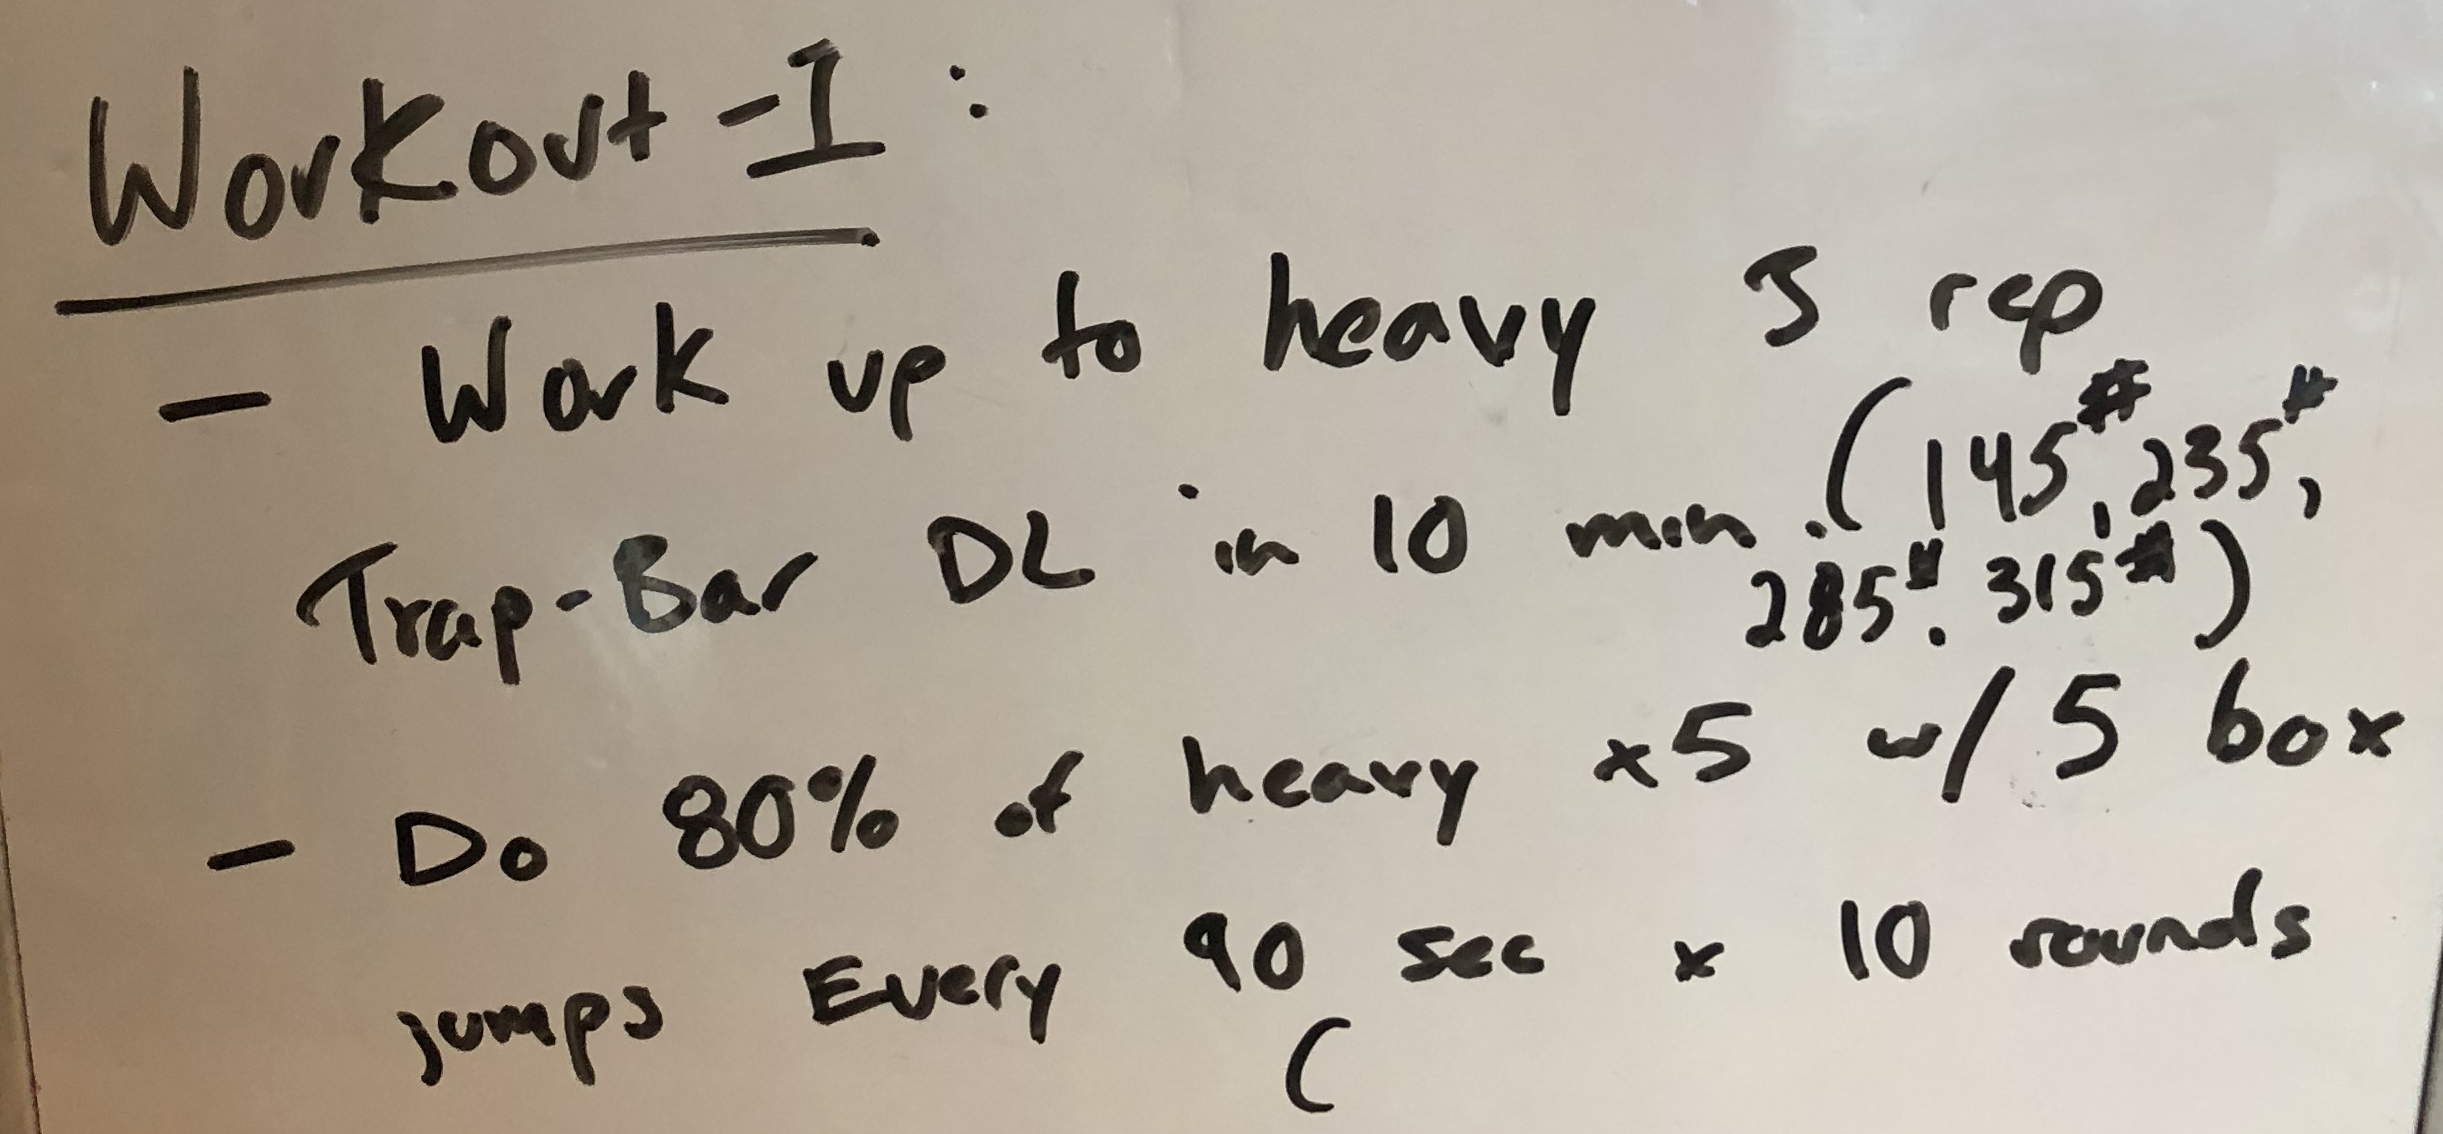 Workout-I:
- Work up to heavy 5 rep
Trap-Bar DL in 10 min. (145#, 235#,
285#, 315#)
- Do 80% of heavy x5 w/ 5 box
jumps Every 90 sec x 10 rounds
(